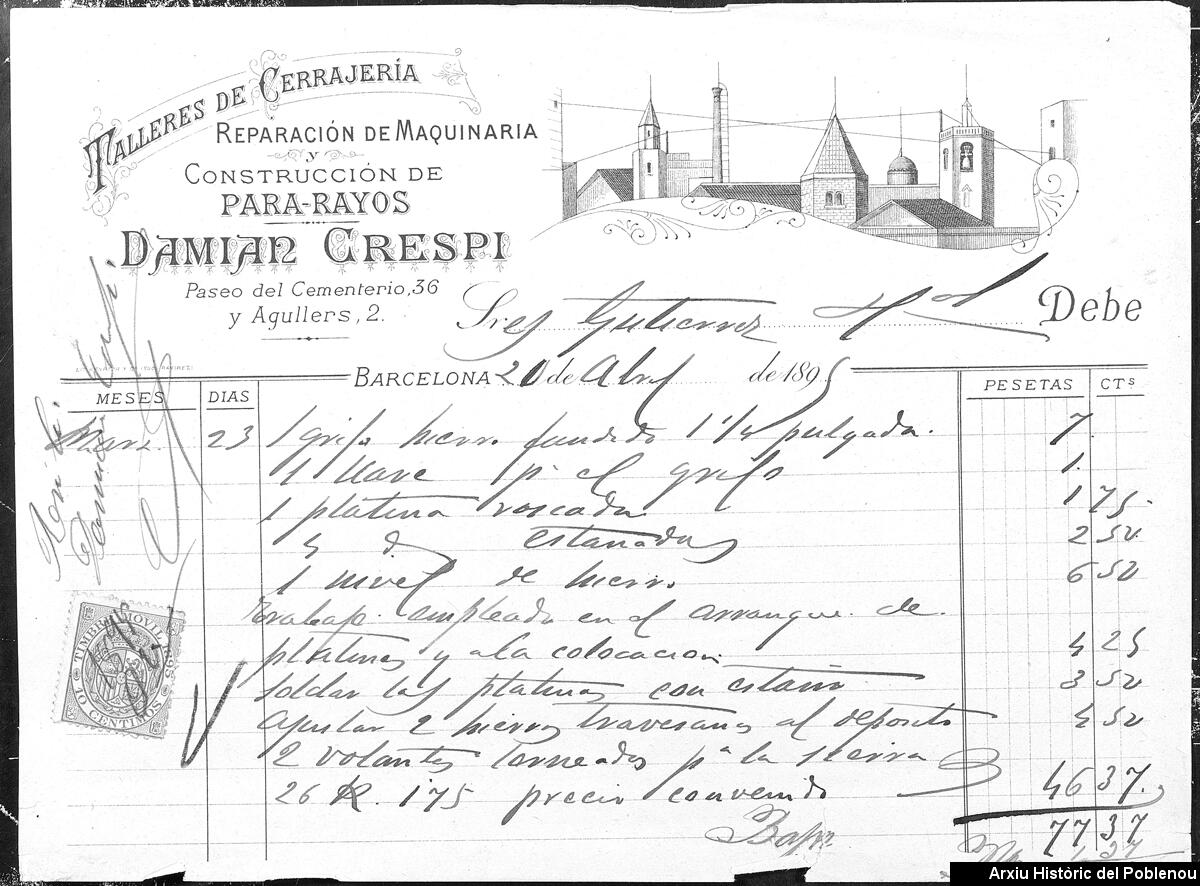 TALLERES DE CERRAJERÍA
REPARACIÓN DE MAQUINARIA
y
CONSTRUCCIÓN DE
PARA-RAYOS
DAMIAN CRESPI
Paseo del Cementerio, 36
y Agullers, 2.
Sres Gutierrez Debe
BARCELONA 20 de Abril de 1895
MESES DIAS PESETAS CTS
Marz. 23 1 grifo hierro fundido 1 1/4 pulgada. 7.
1 llave p. el grifo 1.
1 platina roscada 1 75
5 d. estañadas 2 50
1 nivel de hierro 6 50
trabajo empleado en el arranque de
platinas y a la colocacion 4 25
soldar las platinas con estaño 3 50
ajustar 2 hierros travesaños al deposito 4 50
2 volantes torneados pª la sierra
26 K. 1'75 precio convenido 46 37.
77 37
TIMBRE MOVIL 1895
10 CENTIMOS
Arxiu Històric del Poblenou